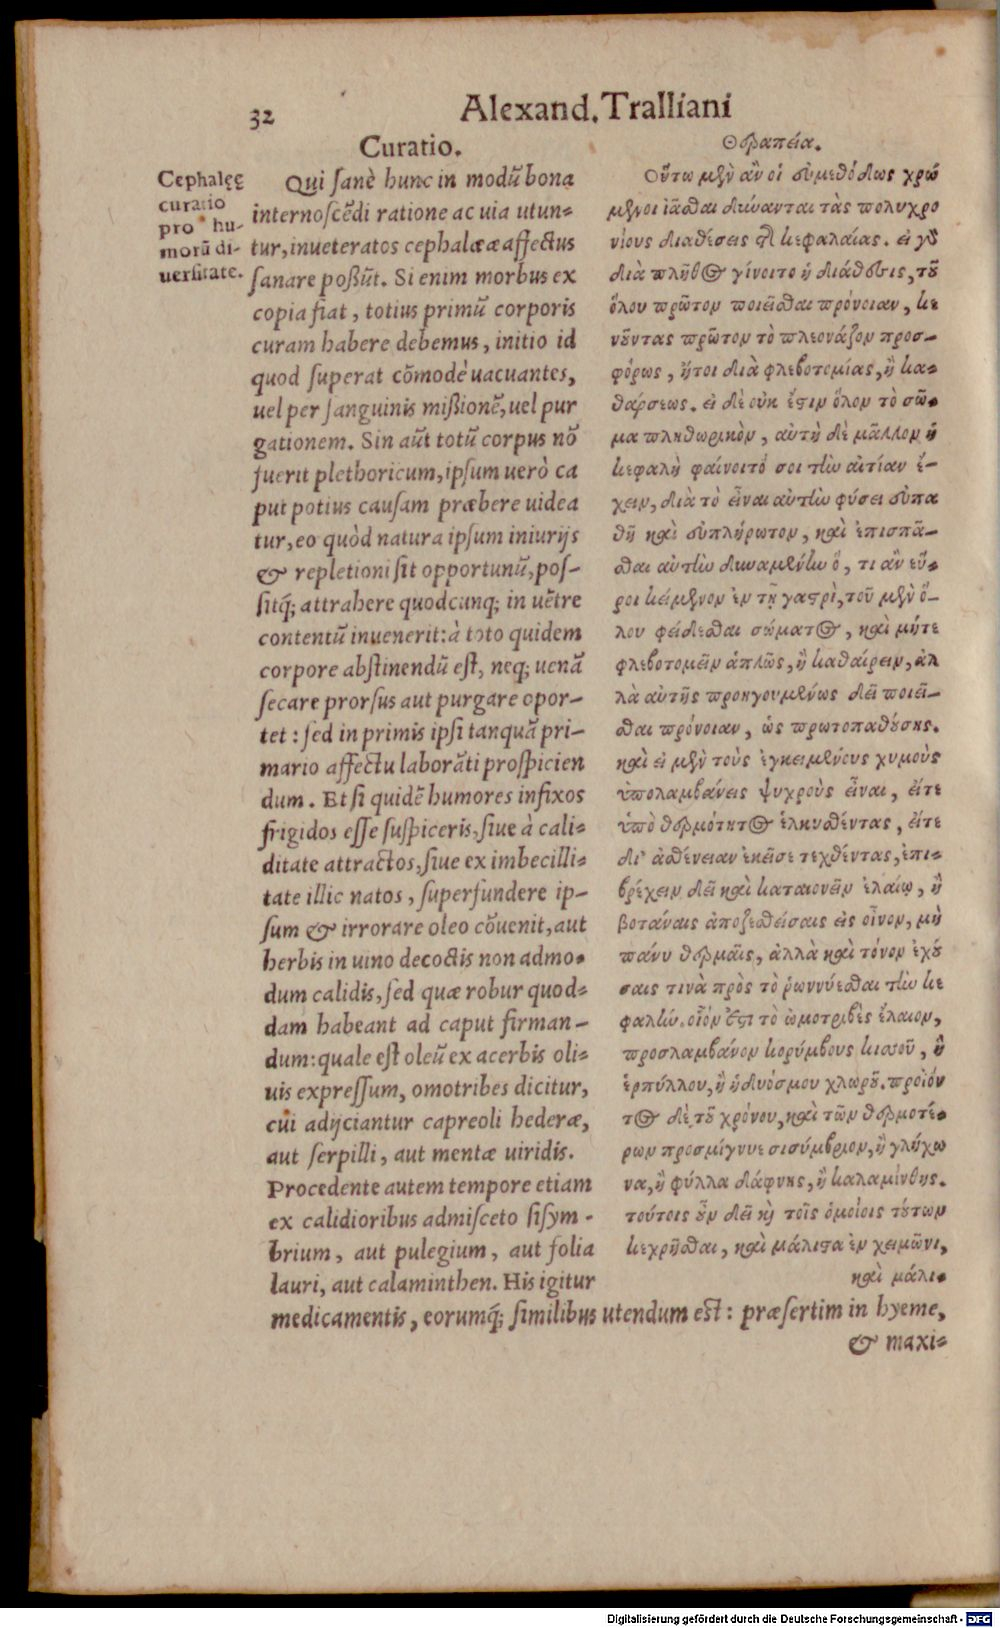 32
Alexand. Tralliani
Curatio.
Cephalęę
curatio
pro hu-
morū di-
uersitate.
Qui sanè hunc in modū bona
internoscēdi ratione ac uia utun=
tur, inueteratos cephalææ affectus
sanare poßūt. Si enim morbus ex
copia fiat, totius primū corporis
curam habere debemus, initio id
quod superat cōmodè uacuantes,
uel per sanguinis mißionē, uel pur
gationem. Sin aūt totū corpus nō
fuerit plethoricum, ipsum uerò ca
put potius causam præbere uidea
tur, eo quòd natura ipsum iniurijs
& repletioni sit opportunū, pos-
sitq́; attrahere quodcunq; in uētre
contentū inuenerit: à toto quidem
corpore abstinendū est, neq; uenā
secare prorsus aut purgare opor-
tet: sed in primis ipsi tanquā pri-
mario affectu laborāti prospicien
dum. Et si quidē humores infixos
frigidos esse suspiceris, siue à cali=
ditate attractos, siue ex imbecilli=
tate illic natos, superfundere ip-
sum & irrorare oleo cōuenit, aut
herbis in uino decoctis non admo=
dum calidis, sed quæ robur quod=
dam habeant ad caput firman-
dum: quale est oleū ex acerbis oli=
uis expressum, omotribes dicitur,
cui adijciantur capreoli hederæ,
aut serpilli, aut mentæ uiridis.
Procedente autem tempore etiam
ex calidioribus admisceto sisym-
brium, aut pulegium, aut folia
lauri, aut calaminthen. His igitur
medicamentis, eorumq́; similibus utendum est: præsertim in hyeme,
& maxi=
Θεραπεία.
Οὕτω μὲν ἂν οἱ εὐμεθόδως χρώ
μενοι ἰᾶσθαι δύνανται τὰς πολυχρο
νίους διαθέσεις τῆς κεφαλαίας. εἰ γὰρ
διὰ πλῆθος γίνοιτο ἡ διάθεσις, τοῦ
ὅλου πρῶτον ποιεῖσθαι πρόνοιαν, κε
νοῦντας πρῶτον τὸ πλεονάζον προσ-
φόρως, ἤτοι διὰ φλεβοτομίας, ἢ κα=
θάρσεως. εἰ δὲ οὐκ ἔστιν ὅλον τὸ σῶ=
μα πληθωρικὸν, αὐτὴ δὲ μᾶλλον ἡ
κεφαλὴ φαίνοιτό σοι τὴν αἰτίαν ἔ-
χειν, διὰ τὸ εἶναι αὐτὴν φύσει εὐπα
θῆ καὶ εὐπλήρωτον, καὶ ἐπισπᾶ-
σθαι αὐτὴν δυναμένην ὅ, τι ἂν εὕ=
ροι κείμενον ἐν τῇ γαστρὶ, τοῦ μὲν ὅ-
λου φείδεσθαι σώματος, καὶ μήτε
φλεβοτομεῖν ἁπλῶς, ἢ καθαίρειν, ἀλ
λὰ αὐτῆς προηγουμένως δεῖ ποιεῖ-
σθαι πρόνοιαν, ὡς πρωτοπαθούσης.
καὶ εἰ μὲν τοὺς ἐγκειμένους χυμοὺς
ὑπολαμβάνεις ψυχροὺς εἶναι, εἴτε
ὑπὸ θερμότητος ἑλκυσθέντας, εἴτε
δι’ ἀσθένειαν ἐκεῖσε τεχθέντας, ἐπι=
βρέχειν δεῖ καὶ καταιονεῖν ἐλαίῳ, ἢ
βοτάναις ἀποζεσθείσαις εἰς οἶνον, μὴ
πάνυ θερμαῖς, ἀλλὰ καὶ τόνον ἐχού
σαις τινὰ πρὸς τὸ ῥωννύεσθαι τὴν κε
φαλήν. οἷόν ἐστι τὸ ὠμοτριβὲς ἔλαιον,
προσλαμβάνον κορύμβους κισσοῦ, ἢ
ἑρπύλλου, ἢ ἡδυόσμου χλωροῦ. προϊόν
τος δὲ τοῦ χρόνου, καὶ τῶν θερμοτέ=
ρων προσμίγνυε σισύμβριον, ἢ γλήχω
να, ἢ φύλλα δάφνης, ἢ καλαμίνθης.
τούτοις οὖν δεῖ καὶ τοῖς ὁμοίοις τούτων
κεχρῆσθαι, καὶ μάλιστα ἐν χειμῶνι,
καὶ μάλι=
Digitalisierung gefördert durch die Deutsche Forschungsgemeinschaft - DFG